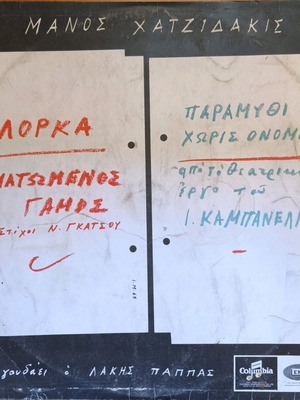 ΜΑΝΟΣ ΧΑΤΖΙΔΑΚΙΣ
ΛΟΡΚΑ
ΜΑΤΩΜΕΝΟΣ
ΓΑΜΟΣ
ΣΤΙΧΟΙ Ν. ΓΚΑΤΣΟΥ
ΠΑΡΑΜΥΘΙ
ΧΩΡΙΣ ΟΝΟΜΑ
ἀπὸ τὸ θεατρικὸ
ἔργο τοῦ
Ι. ΚΑΜΠΑΝΕΛΛ
γουδάει ὁ ΛΑΚΗΣ ΠΑΠΠΑΣ
Columbia